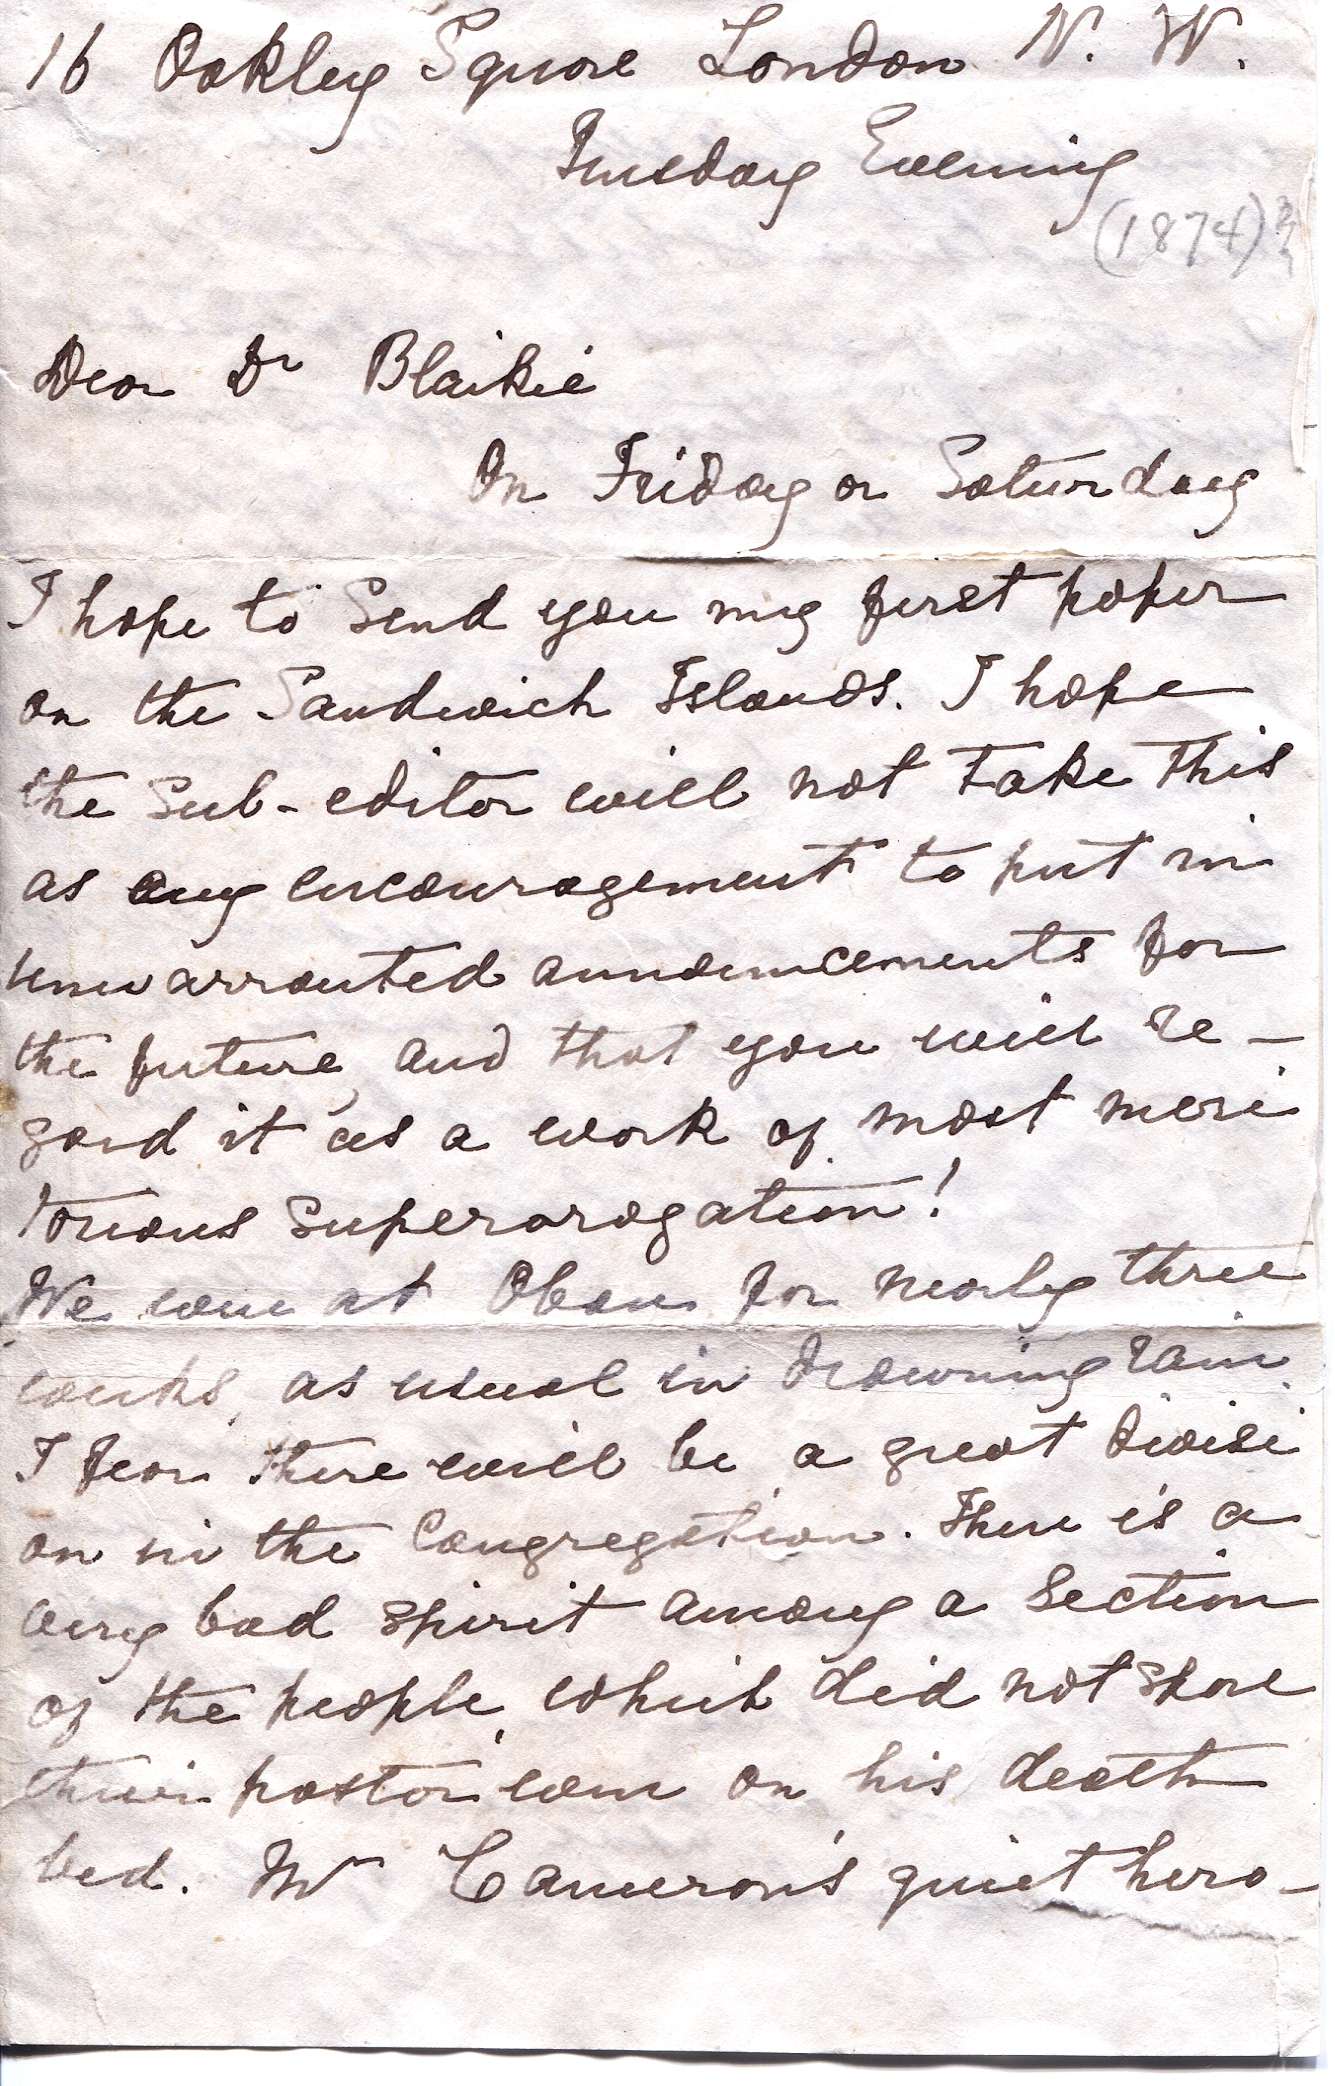 16 Oakley Square London N. W.
Tuesday Evening
(1874)
Dear Dr Blaikie
On Friday or Saturday
I hope to send you my first paper
on the Sandwich Islands. I hope
the sub-editor will not take this
as any encouragement to put in
unwarranted announcements for
the future, and that you will re-
gard it as a work of most meri
torious superarogation!
We were at Oban for nearly three
weeks, as usual in drowning rain.
I fear there will be a great divisi
on in the Congregation. There is a
very bad spirit among a section
of the people, which did not spare
their pastor even on his death
bed. Mr Cameron's quiet hero-